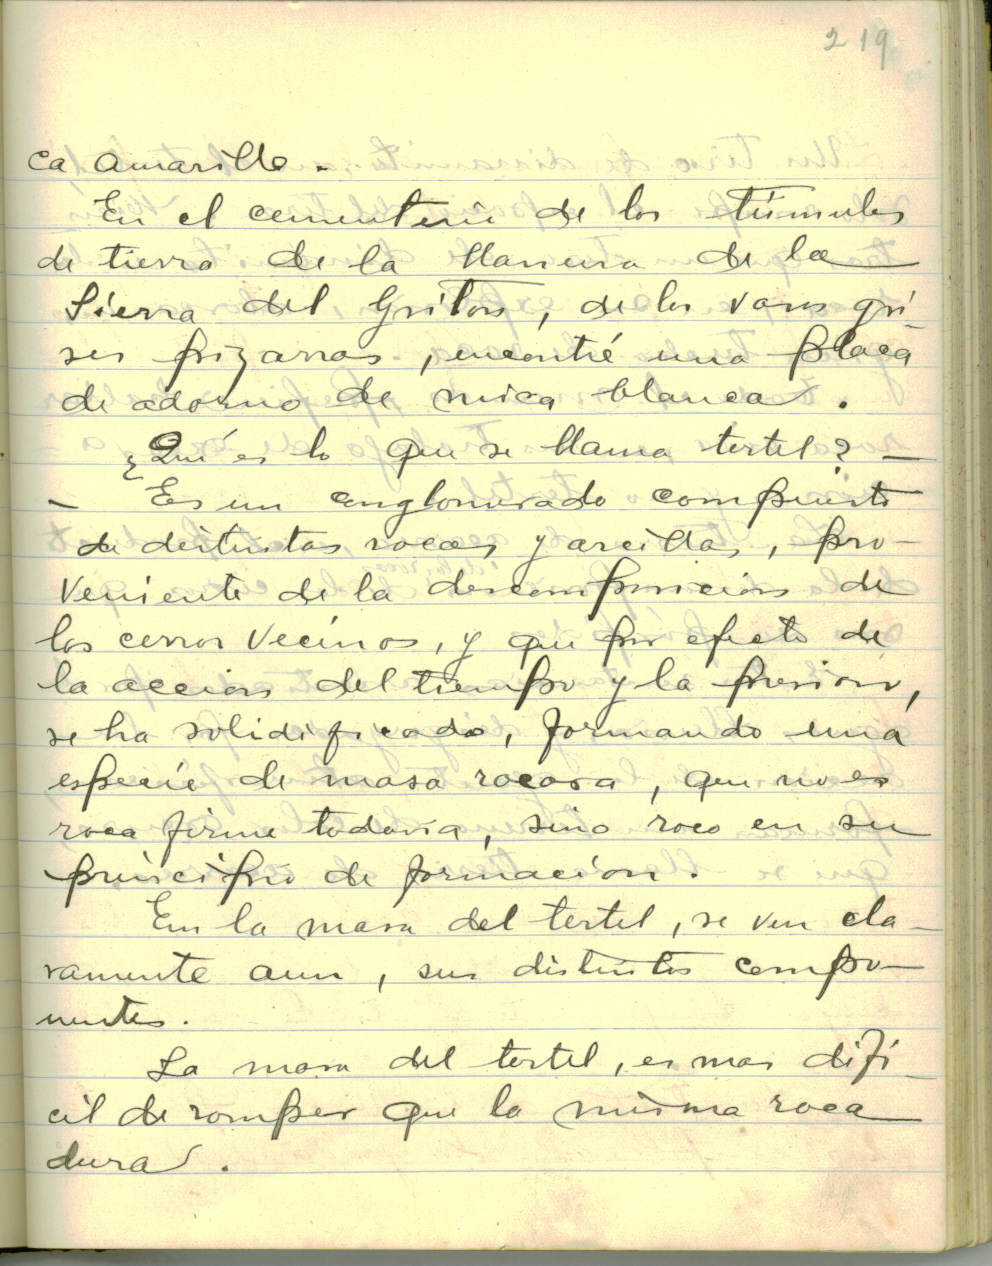 219
ca amarilla.
En el cementerio de los túmulos
de tierra de la llanura de la
Sierra del Gritón, de los vasos gri
ses pizarras, encontré una placa
de adorno de mica blanca.
¿Qué es lo que se llama tertel? —
— Es un conglomerado compuesto
de distintas rocas y arcillas, pro-
veniente de la descomposicion de
los cerros vecinos, y que por efecto de
la accion del tiempo y la presion,
se ha solidificado, formando una
especie de masa rocosa, que no es
roca firme todavia, sino roca en su
principio de formacion.
En la masa del tertel, se ven cla-
ramente aun, sus distintos compo-
nentes.
La masa del tertel, es mas difi-
cil de romper que la misma roca
dura.